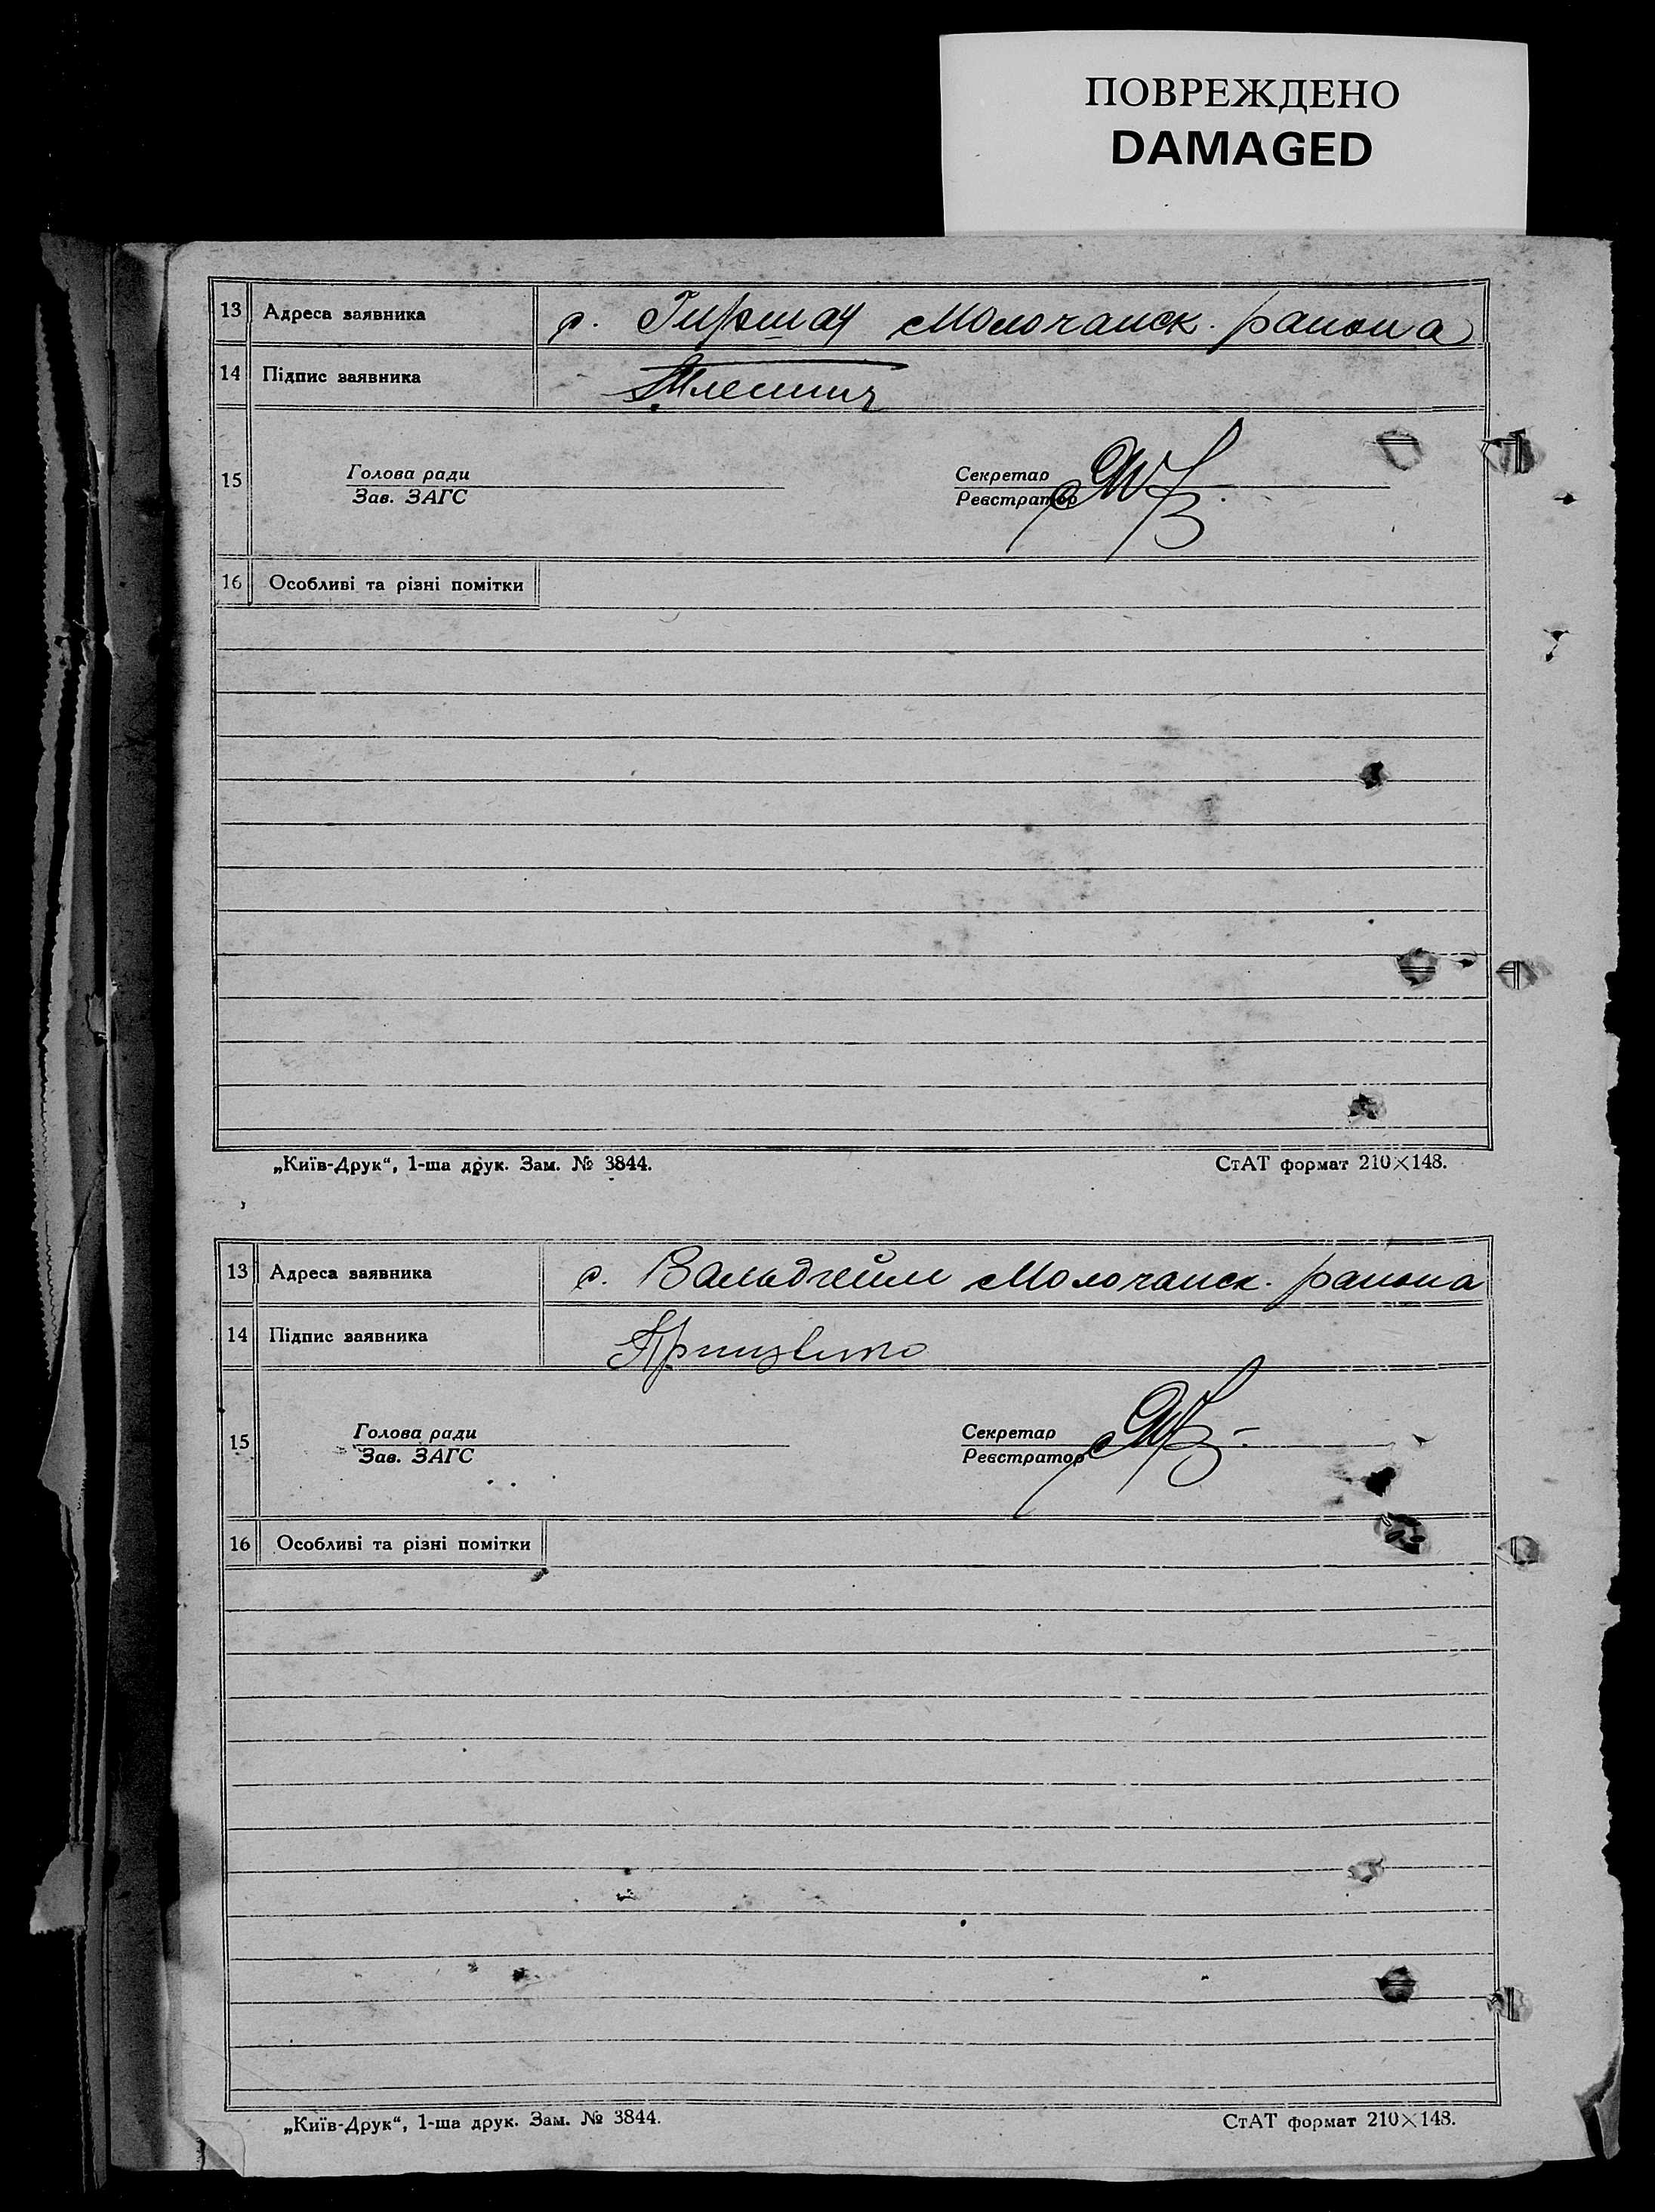 ПОВРЕЖДЕНО
DAMAGED
13 Адреса заявника с. Гиршау Молочанск. района
14 Підпис заявника
15 Голова ради Секретар
Зав. ЗАГС Реєстратор
16 Особливі та різні помітки
„Київ-Друк“, 1-ша друк. Зам. № 3844. СтАТ формат 210×148.
13 Адреса заявника с. Вальдгейм Молочанск. района
14 Підпис заявника
15 Голова ради Секретар
Зав. ЗАГС Реєстратор
16 Особливі та різні помітки
„Київ-Друк“, 1-ша друк. Зам. № 3844. СтАТ формат 210×148.